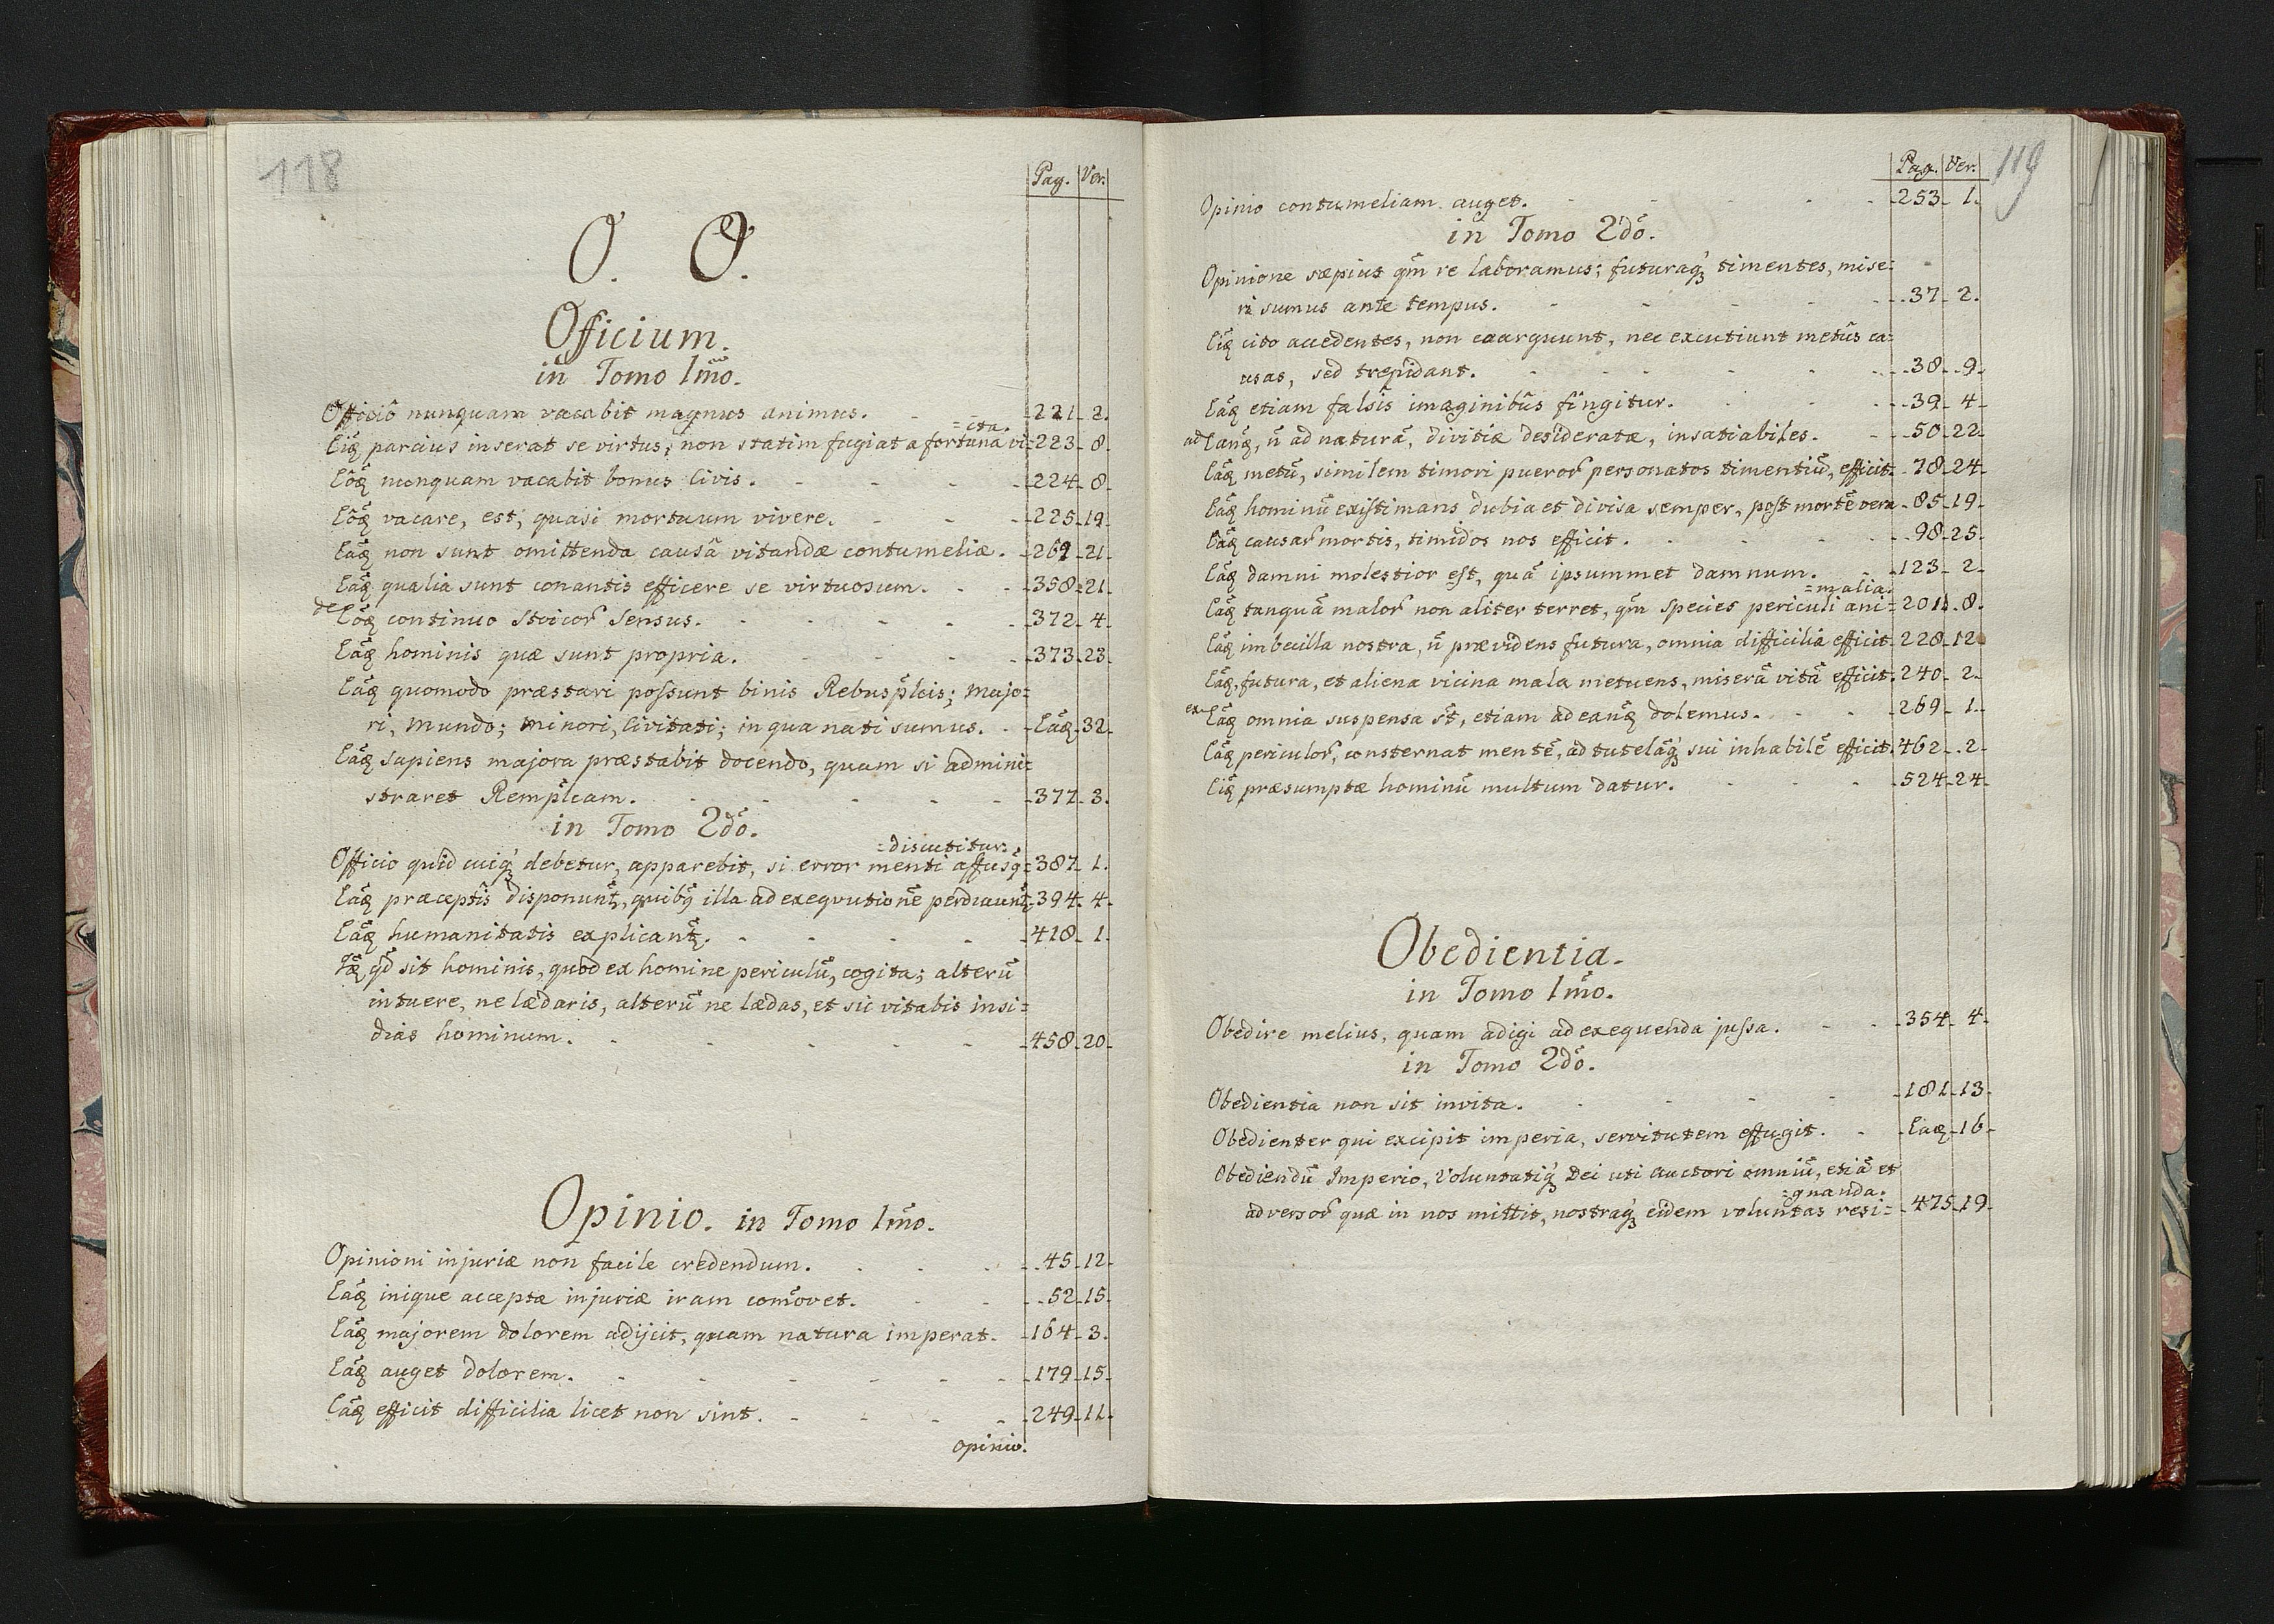 118
Pag. Ver.
O. O.
Officium.
in Tomo 1mõ.
Officiô nunquam vacabit magnus animus. 221 2.
=cta.
Eiq̃ parcius inserat se virtus, non statim fugiat a fortuna vi= 223 8.
Eôq̃ nunquam vacabit bonus Civis. 224 8.
Eôq̃ vacare, est, quasi mortuum vivere. 225 19.
Eãq̃ non sunt omittenda causâ vitandæ contumeliæ. 269 21.
Eãq̃ qualia sunt conantis efficere se virtuosum. 358 21.
de Eõq̃ continuo Stoicor̃ Sensus. 372 4.
Eãq̃ hominis quæ sunt propria. 373 23.
Eãq̃ quomodo præstari poſsunt binis Rebusp̃lcis; majo=
ri, Mundo; minori, Civitati; in qua nati sumus. Eãq̃ 32.
Eãq̃ Sapiens majora præstabit docendo, quam si admini=
straret Remp̃lcam. 377 3.
in Tomo 2dõ.
=discutitur.
Officio quid cuiq̃ debetur, apparebit, si error menti affusq̃= 387 1.
Eãq̃ præceptîs disponunt̃, quibq̃ illa ad exeqvutionẽ perducunt̃ 394 4.
Eãq̃ humanitatis explicant̃. 418 1.
qd̃ sit hominis, quod ex homine periculũ, cogita; alterũ
intuere, ne lædaris, alterũ ne lædas, et sic vitabis insi=
dias hominum. 458 20.
Opinio. in Tomo 1mõ.
Opinioni injuriæ non facile credendum. 45 12.
Eãq̃ inique acceptæ injuriæ iram com̃ovet. 52 15.
Eãq̃ majorem dolorem adijcit, quam natura imperat. 164 3.
Eãq̃ auget dolorem. 179 15.
Eãq̃ efficit difficilia licet non sint. 249 11.
opinio.
119
Pag. Ver.
Opinio contumeliam auget. 253 1.
in Tomo 2dõ.
Opinione sæpius qm̃ re laboramus; futuraq̃ timentes, mise=
ri sumus ante tempus. 37 2.
Eiq̃ cito accedentes, non coarguunt, nec excutiunt metûs ca=
usas, sed trepidant. 38 9.
Eãq̃ etiam falsîs imaginibûs fingitur. 39 4.
ad Eanq̃, ũ ad naturã, divitiæ desideratæ, insatiabiles. 50 22.
Eãq̃ metũ, similem timori pueror̃ personatos timentiũ, efficit 78 24.
Eãq̃ hominũ existimans dubia et divisa semper, post mortẽ vera 85 19.
Eãq̃ causar̃ mortis, timidos nos efficit. 98 25.
Eãq̃ damni molestior est, quã ipsummet damnum. 123 2.
=malia.
Eãq̃ tanquã malor̃ non aliter terret, qm̃ species periculi ani= 201 8.
Eãq̃ imbecilla nostra, ũ prævidens futura, omnia difficilia efficit 228 12.
Eãq̃, futura, et aliena vicina mala metuens, miserã vitã efficit. 240 2.
ex Eãq̃ omnia suspensa st̃, etiam ad eanq̃ dolemus. 269 1.
Eãq̃ periculor̃, consternat mentẽ, ad tutelãq̃ sui inhabilẽ efficit. 462 2.
Eiq̃ præsumptæ hominũ multum datur. 524 24.
Obedientia.
in Tomo 1mõ.
Obedire melius, quam adigi ad exequenda juſsa. 354 4.
in Tomo 2dõ.
Obedientia non sit invita. 181 13.
Obedienter qui excipit imperia, servitutem effugit. Eaq̃ 16.
Obediendũ Imperio, Voluntatiq̃ Dei uti Auctori omniũ, etiã et
=gnanda.
adversor̃ quæ in nos mittit, nostraq̃ eidem voluntas resi= 475 19.